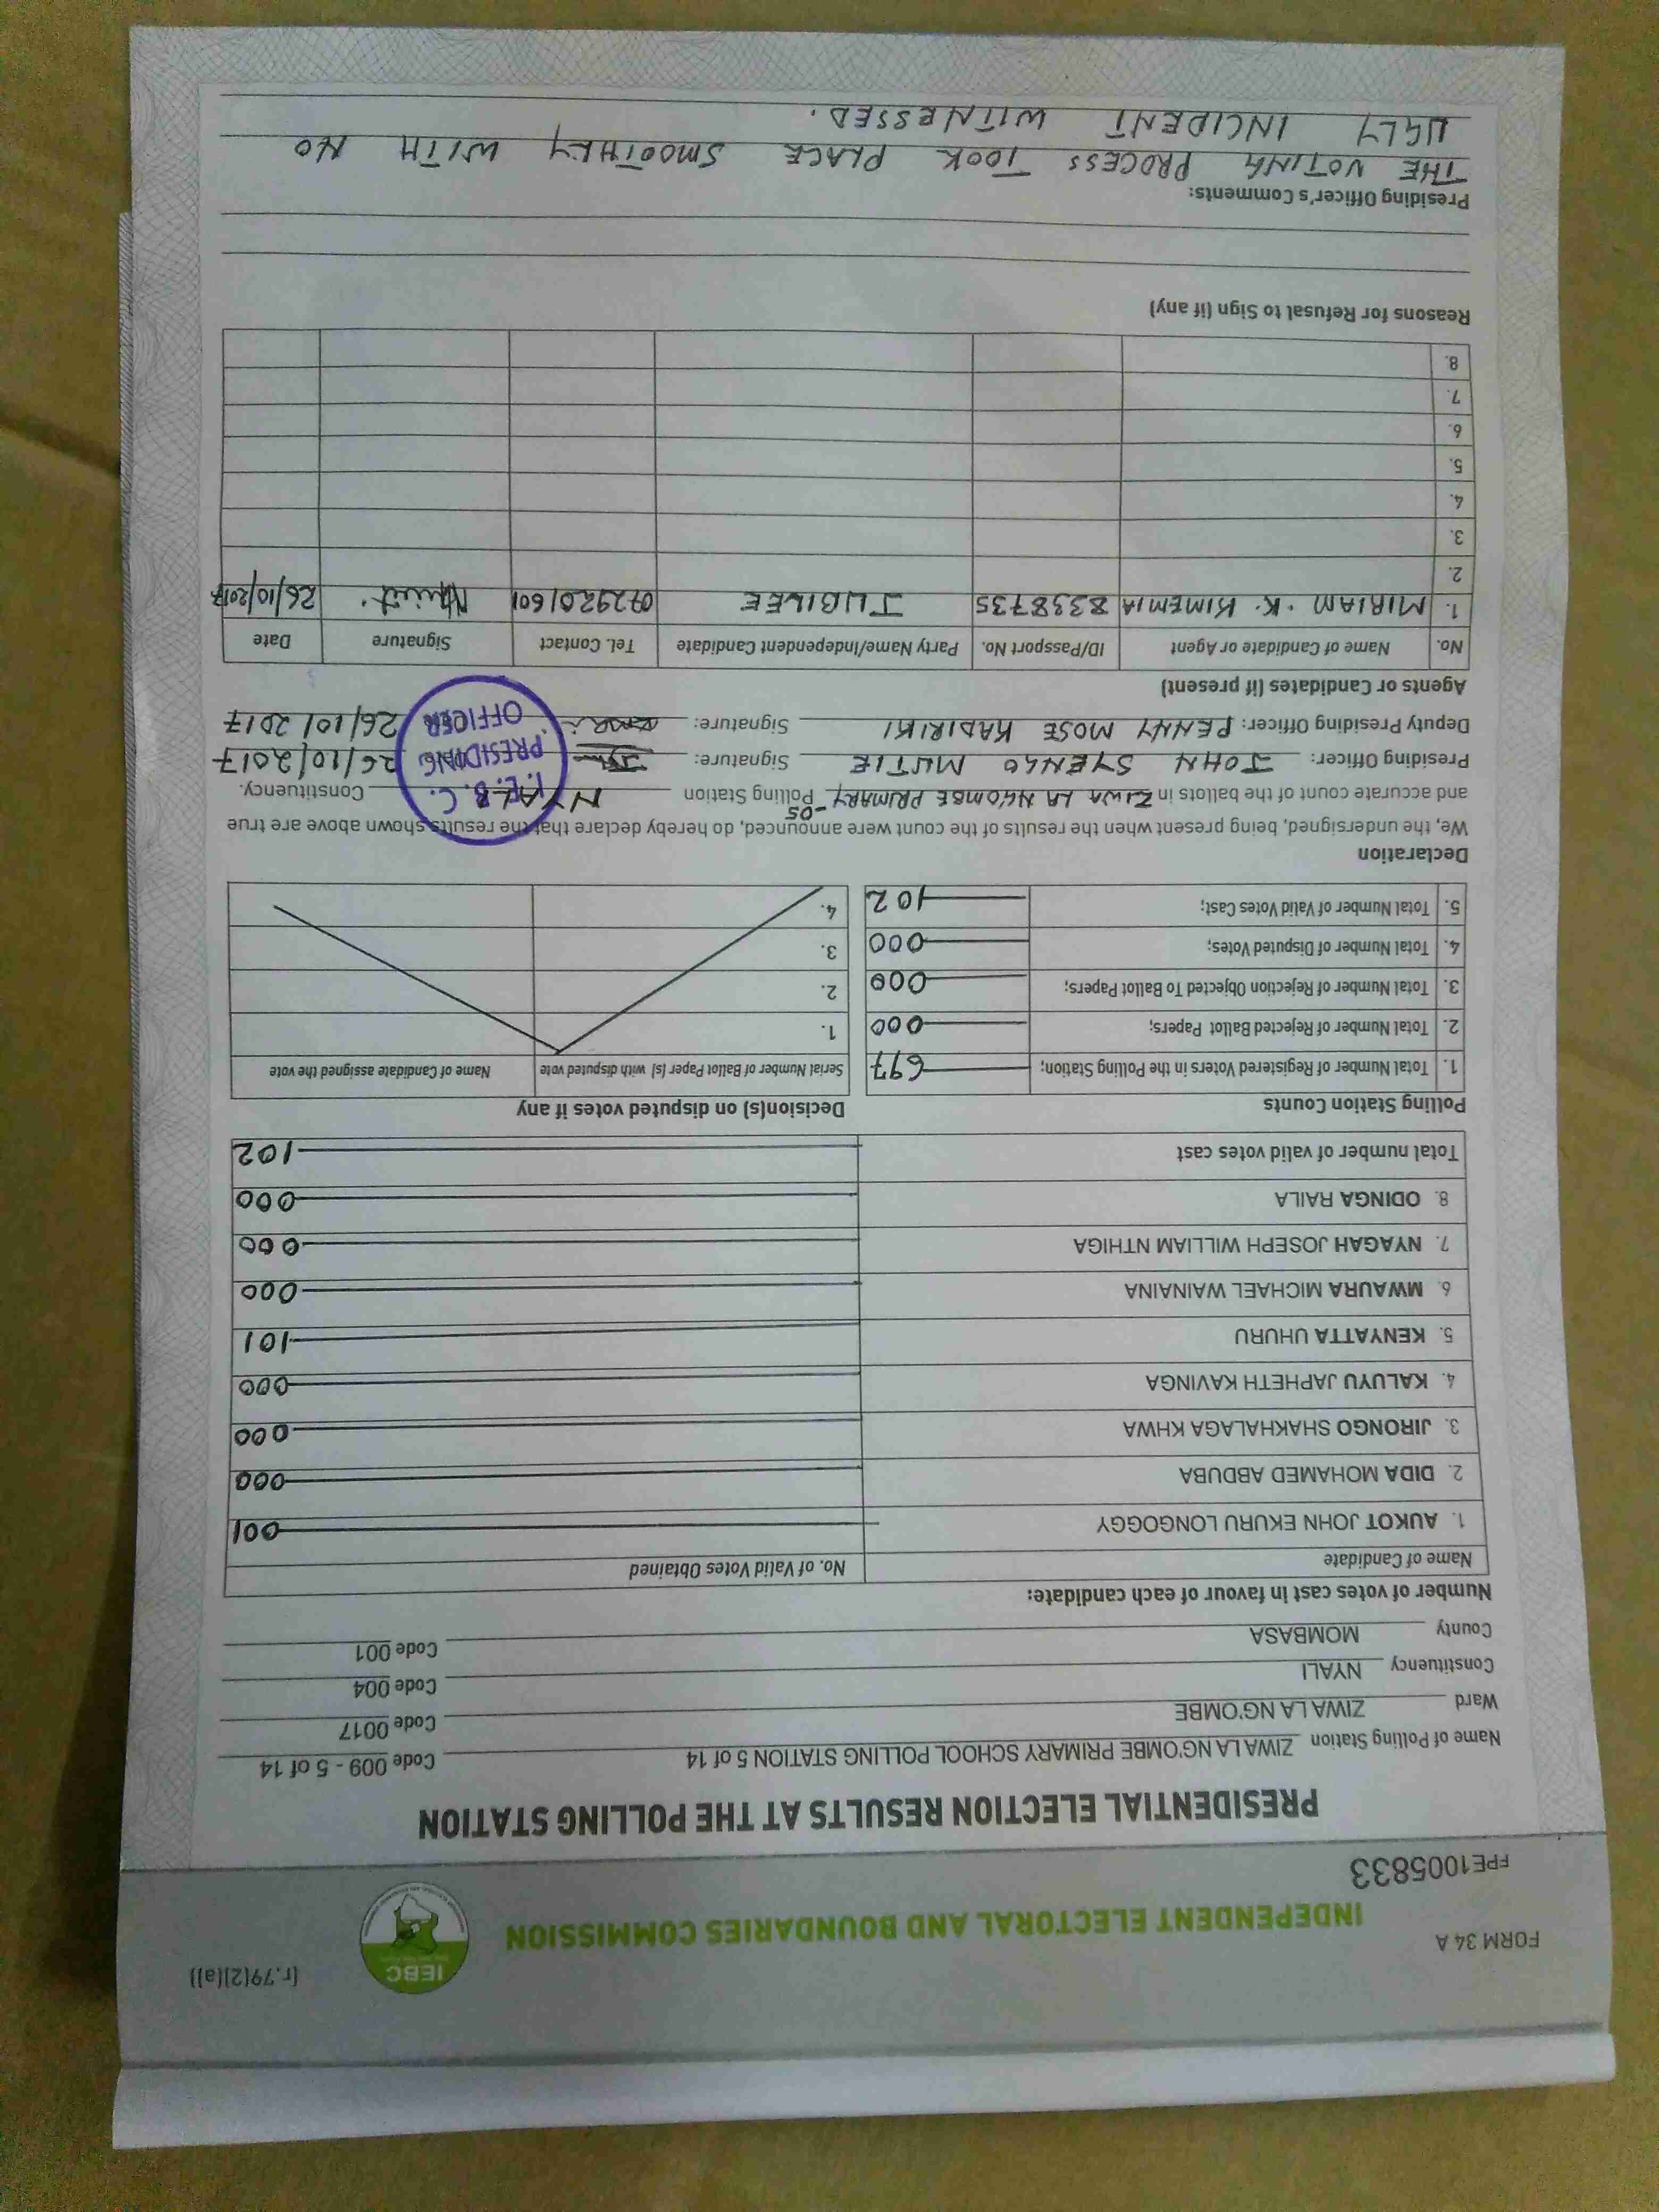 FORM 34 A
(r.79(2)(a))
INDEPENDENT ELECTORAL AND BOUNDARIES COMMISSION
IEBC
FPE1005833
PRESIDENTIAL ELECTION RESULTS AT THE POLLING STATION
Name of Polling Station ZIWA LA NG'OMBE PRIMARY SCHOOL POLLING STATION 5 of 14 Code 009 - 5 of 14
Ward ZIWA LA NG'OMBE Code 0017
Constituency NYALI Code 004
County MOMBASA Code 001
Number of votes cast in favour of each candidate:
Name of Candidate No. of Valid Votes Obtained
1. AUKOT JOHN EKURU LONGOGGY 001
2. DIDA MOHAMED ABDUBA 000
3. JIRONGO SHAKHALAGA KHWA 000
4. KALUYU JAPHETH KAVINGA 000
5. KENYATTA UHURU 101
6. MWAURA MICHAEL WAINAINA 000
7. NYAGAH JOSEPH WILLIAM NTHIGA 000
8. ODINGA RAILA 000
Total number of valid votes cast 102
Polling Station Counts
1. Total Number of Registered Voters in the Polling Station; 697
2. Total Number of Rejected Ballot Papers; 000
3. Total Number of Rejection Objected To Ballot Papers; 000
4. Total Number of Disputed Votes; 000
5. Total Number of Valid Votes Cast; 102
Decision(s) on disputed votes if any
Serial Number of Ballot Paper (s) with disputed vote Name of Candidate assigned the vote
1.
2.
3.
4.
Declaration
We, the undersigned, being present when the results of the count were announced, do hereby declare that the results shown above are true
and accurate count of the ballots in ZIWA LA NG'OMBE PRIMARY -05 Polling Station NYALI Constituency.
Presiding Officer: JOHN SYENGO MUTIE Signature: 26/10/2017
Deputy Presiding Officer: PENNY MOSE KADIRIKI Signature: 26/10/2017
I.E.B.C.
PRESIDING
OFFICER
Agents or Candidates (if present)
No. Name of Candidate or Agent ID/Passport No. Party Name/Independent Candidate Tel. Contact Signature Date
1. MIRIAM .K. KIMEMIA 8338735 JUBILEE 0729201601 26/10/2017
2.
3.
4.
5.
6.
7.
8.
Reasons for Refusal to Sign (if any)
Presiding Officer's Comments:
THE VOTING PROCESS TOOK PLACE SMOOTHLY WITH NO
UGLY INCIDENT WITNESSED.